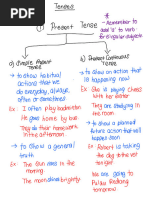 Tenses
① Present Tense
* Remember to
add 's' to verb
for singular subjects
a) Simple Present
Tense
b) Present Continuous
Tense
→ to show habitual
actions that we
do everyday, always,
often or sometimes
→ to show an action that
is happening now
Ex: She is playing chess
with her mother
Ex: I often play badminton
They do their homework
in the afternoon
They are studying in
the room
→ to show a planned
future action that will
happen soon
→ to show a general
truth
Ex: The sun rises in
the morning
The moon shines brightly
Ex: Robert is taking
the dog to the vet
We are going
to